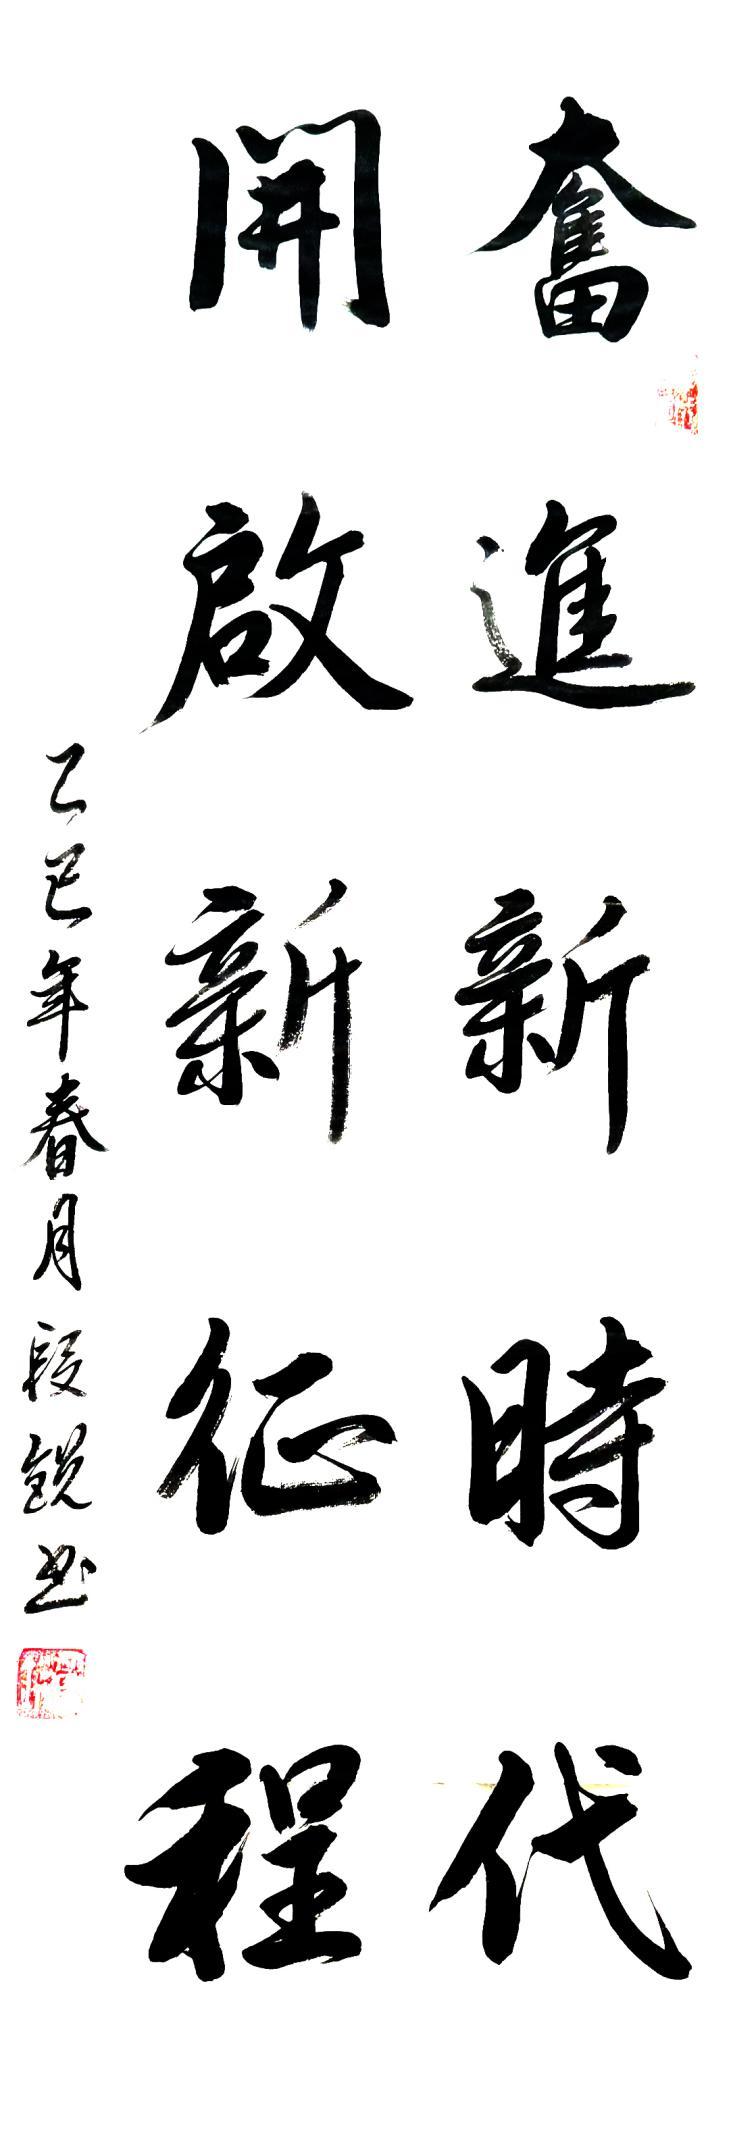 奮進新時代
開啟新征程
乙巳年春月段锐书